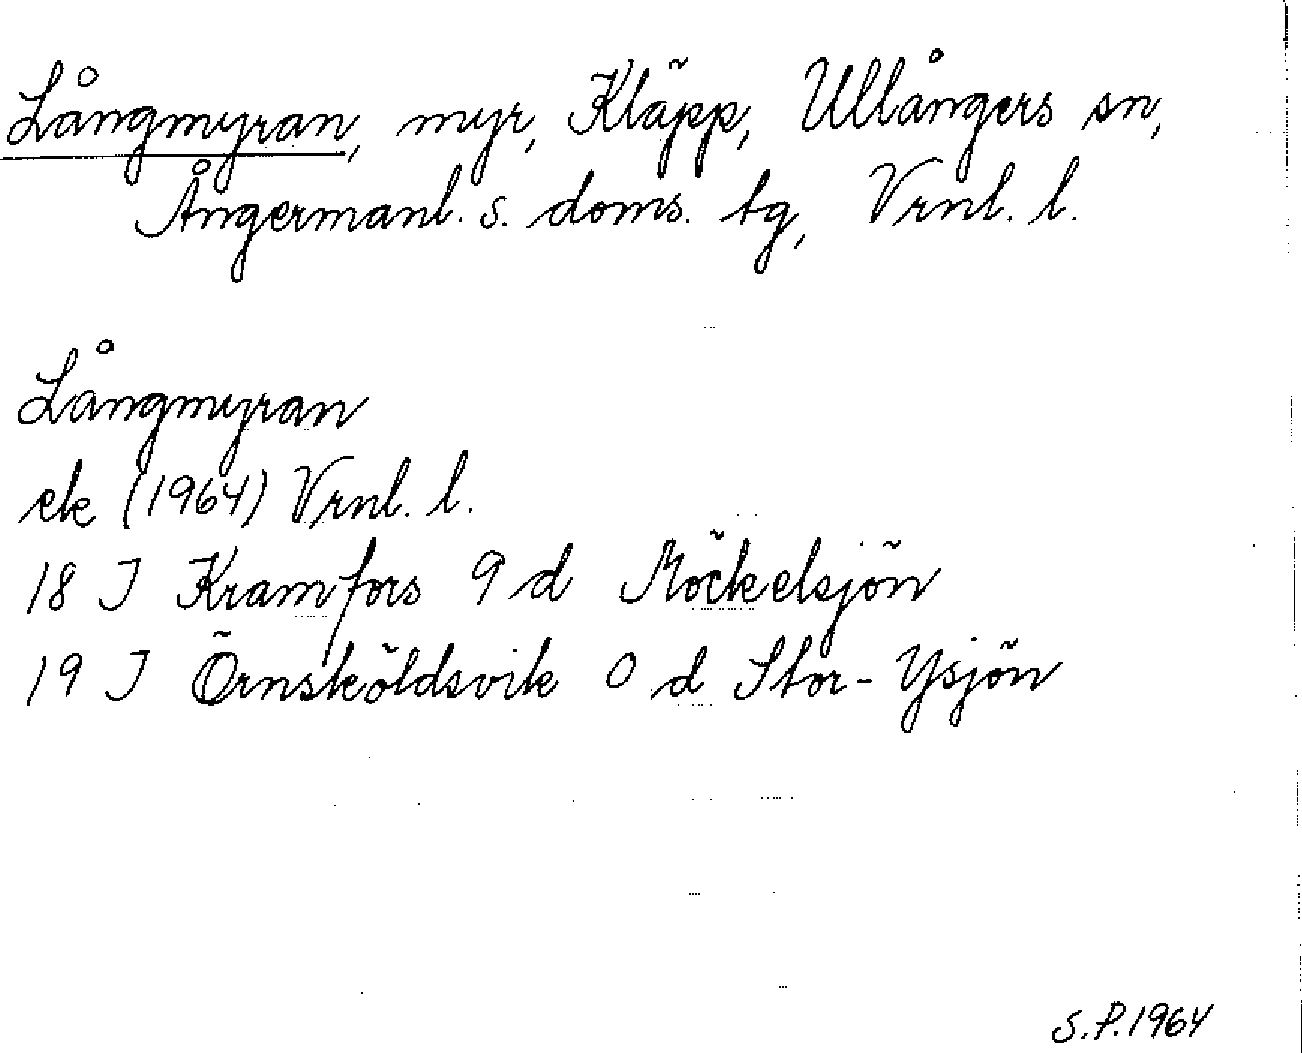 Långmyran, myr, Kläpp, Ullångers sn,
Ångermanl. s. doms. tg, Vrnl. l.
Långmyran
ek (1964) Vrnl. l.
18 J Kramfors 9 d Möckelsjön
19 J Örnsköldsvik 0 d Stor-Ysjön
S.P. 1964